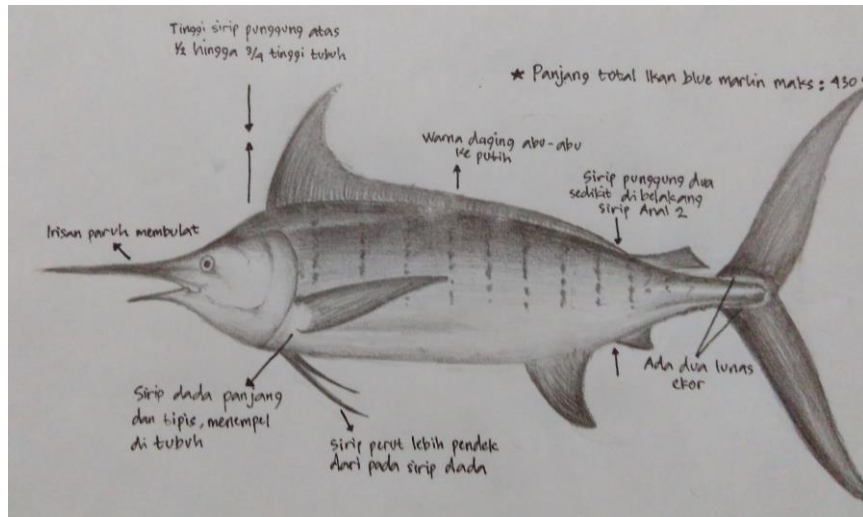 Tinggi sirip punggung atas
1/2 hingga 3/4 tinggi tubuh
* Panjang total Ikan blue marlin maks : 430
Warna daging abu-abu
ke putih
Sirip punggung dua
sedikit di belakang
sirip Anal 2
Irisan paruh membulat
Ada dua lunas
ekor
Sirip dada panjang
dan tipis, menempel
di tubuh
Sirip perut lebih pendek
dari pada sirip dada